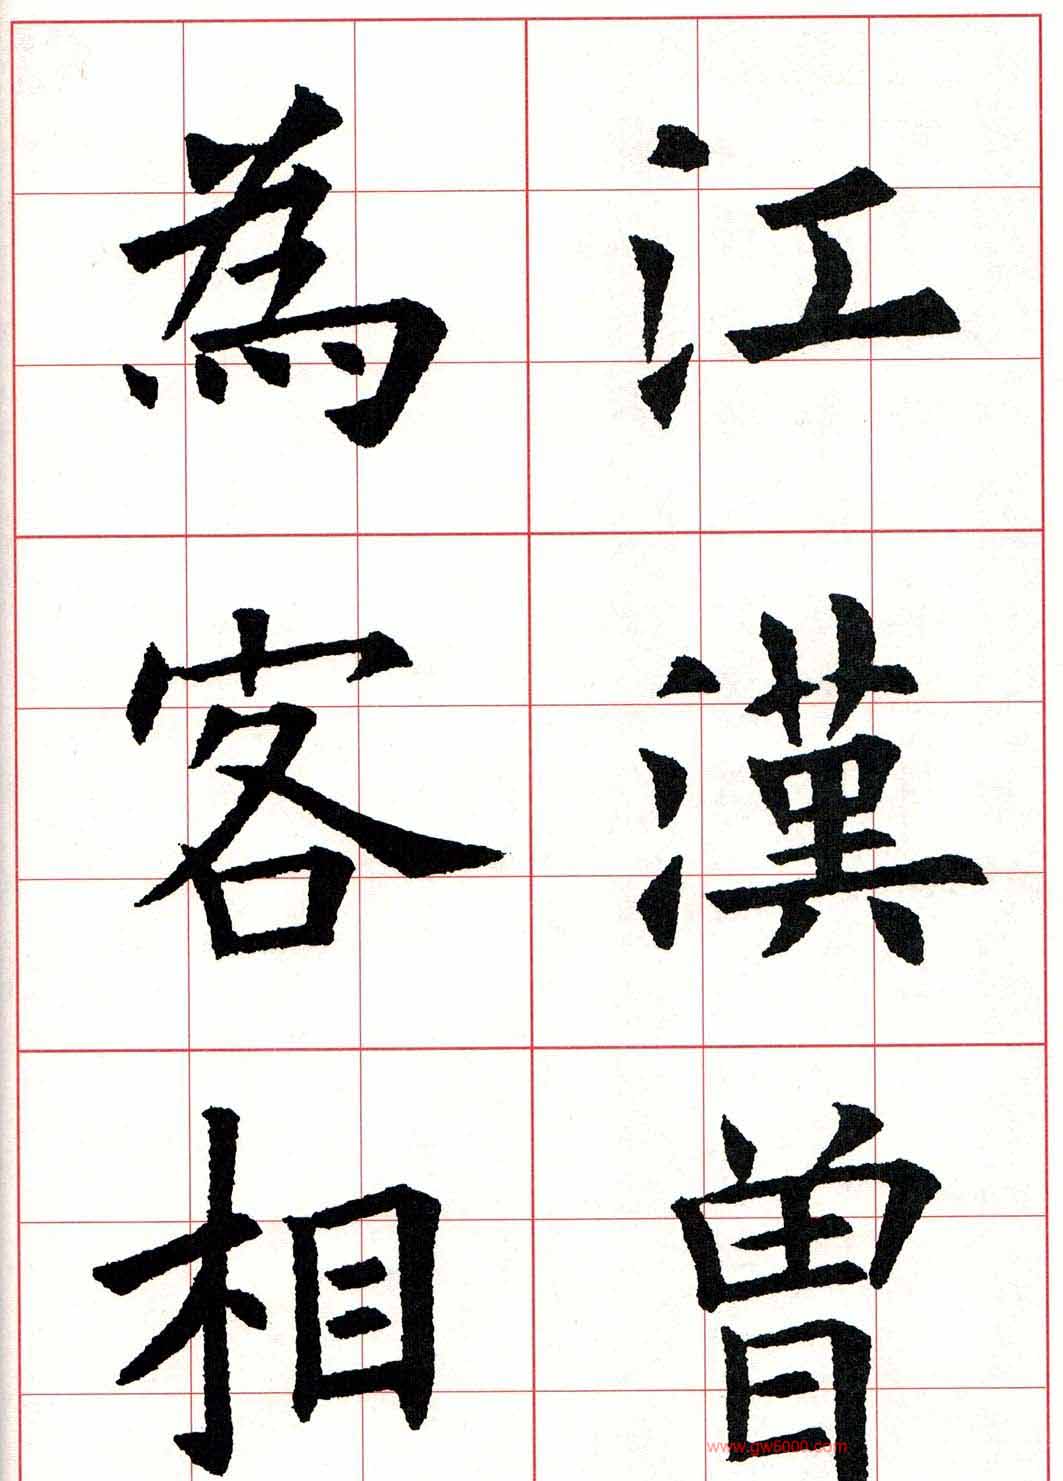 江漢曾
為客相
www.gw5000.com